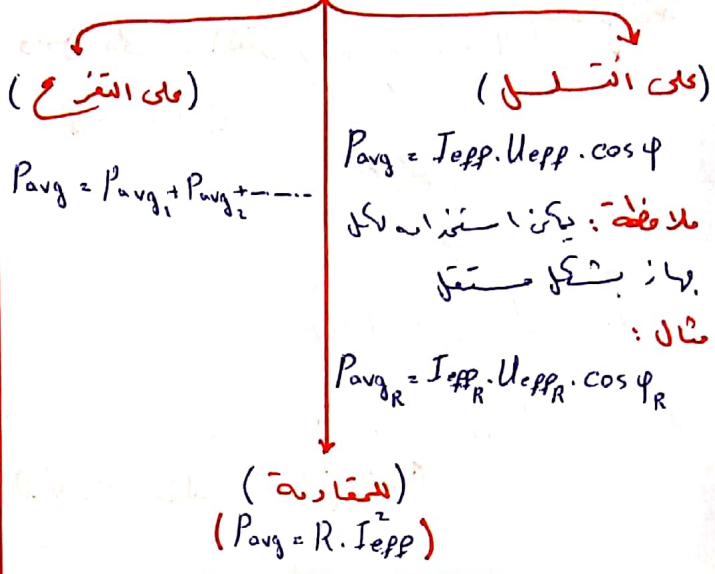 (على التسلسل)
Pavg = Ieff . Ueff . cos φ
ملاحظة: يمكن استخدامه لكل
جهاز بشكل مستقل
مثال :
Pavg_R = Ieff_R . Ueff_R . cos φ_R
(على التفرع)
Pavg = Pavg₁ + Pavg₂ + -----
(للمقاومة)
(Pavg = R . I²eff)